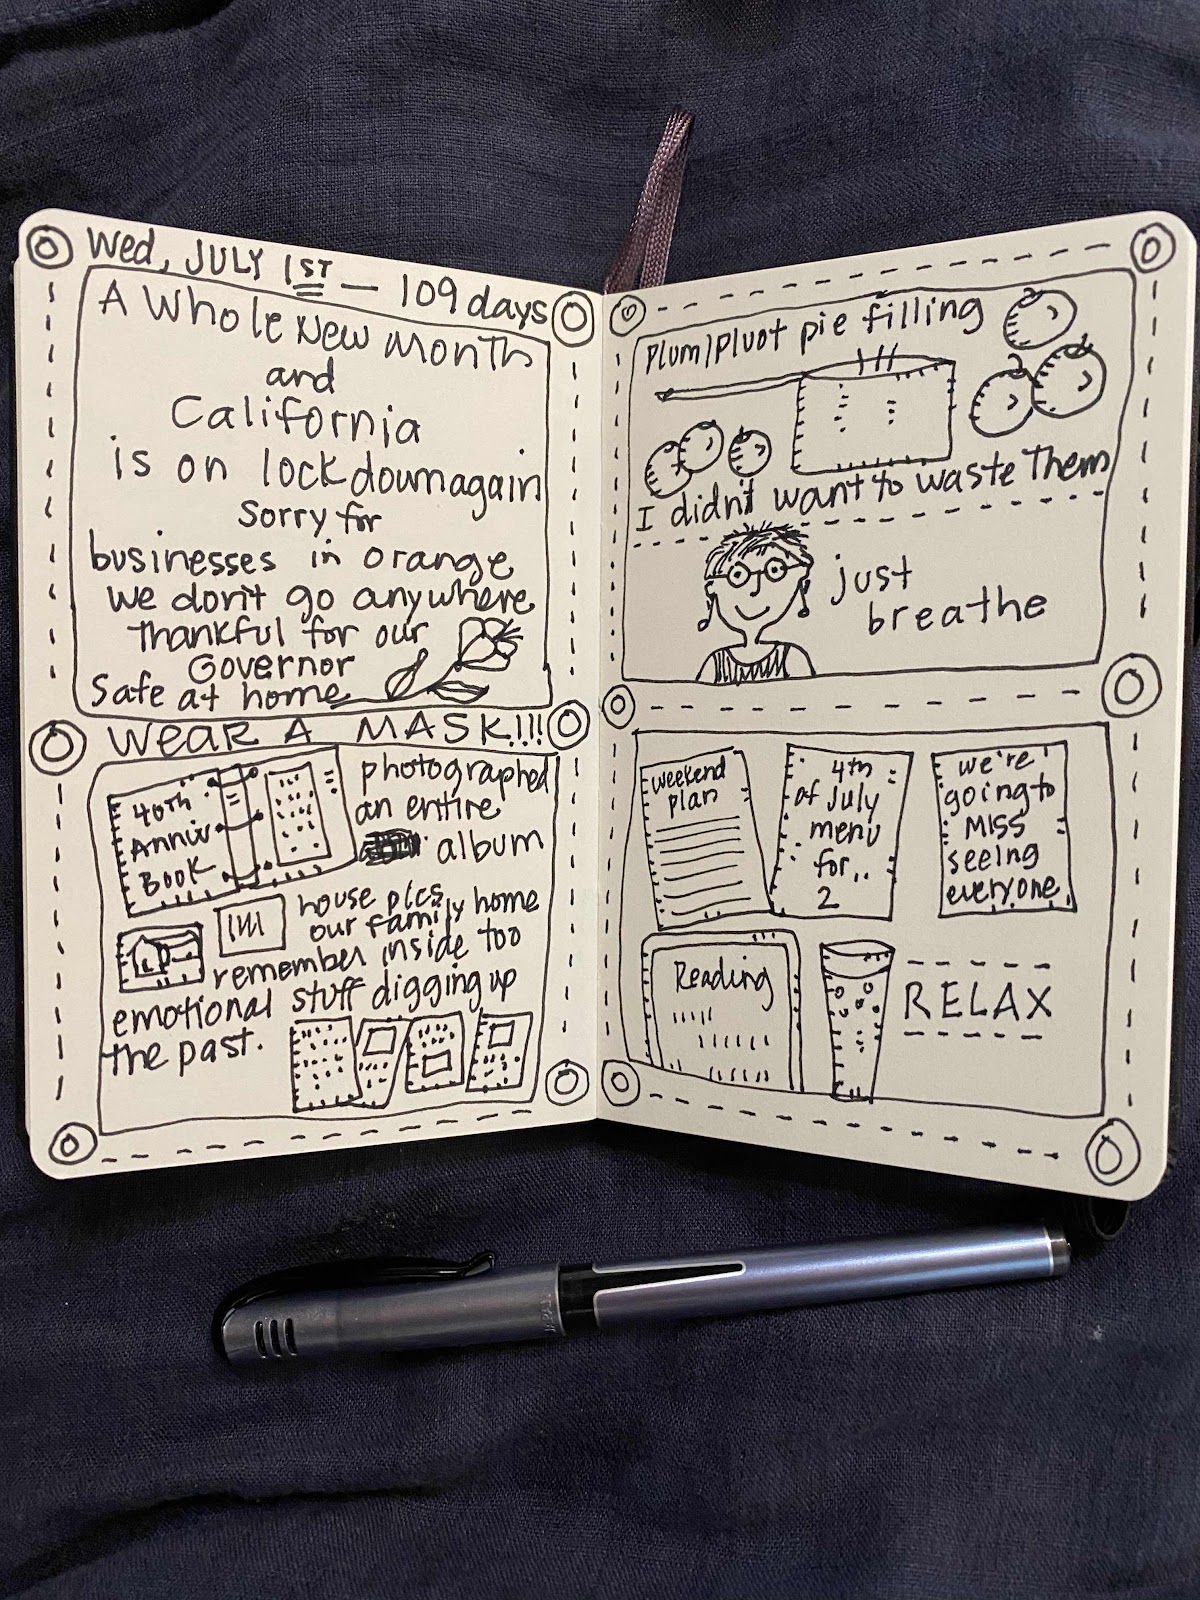 Wed, JULY 1ST — 109 days
A Whole New Month
and
California
is on lockdown again
Sorry for
businesses in orange
we don't go anywhere
thankful for our
Governor
Safe at home
WEAR A MASK!!!!
40th
Anniv
Book
photographed
an entire
album
house pics
our family home
remember inside too
emotional stuff digging up
the past.
Plum/Pluot pie filling
I didn't want to waste them
just
breathe
weekend
plan
4th
of July
menu
for..
2
we're
going to
MISS
seeing
everyone
Reading
RELAX